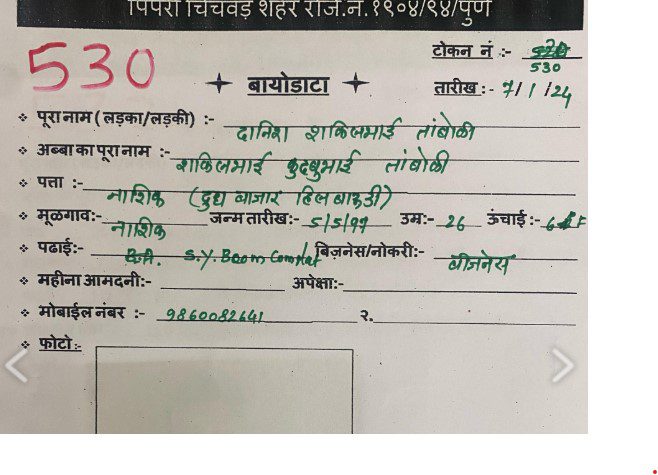 पिंपरी चिंचवड शहर रजि.नं.१९०४/९४/पुणे
530
टोकन नं :- 530
❖ बायोडाटा ❖
तारीख :- 7/1/24
पूरा नाम (लड़का/लड़की) :- दानिश शकिलभाई तांबोळी
अब्बा का पूरा नाम :- शकिलभाई कुदबुभाई तांबोळी
पत्ता :- नाशिक (दुध बाजार हिल बाऊडी)
मूळगाव:- नाशिक जन्म तारीख:- 5/5/99 उम्र:- 26 ऊंचाई :- 6 F
पढाई:- S.Y. Bcom Complet बिज़नेस/नोकरी:- बीजनेस
महीना आमदनी:- अपेक्षा:-
मोबाईल नंबर :- 9860082641 २.
फोटो:-